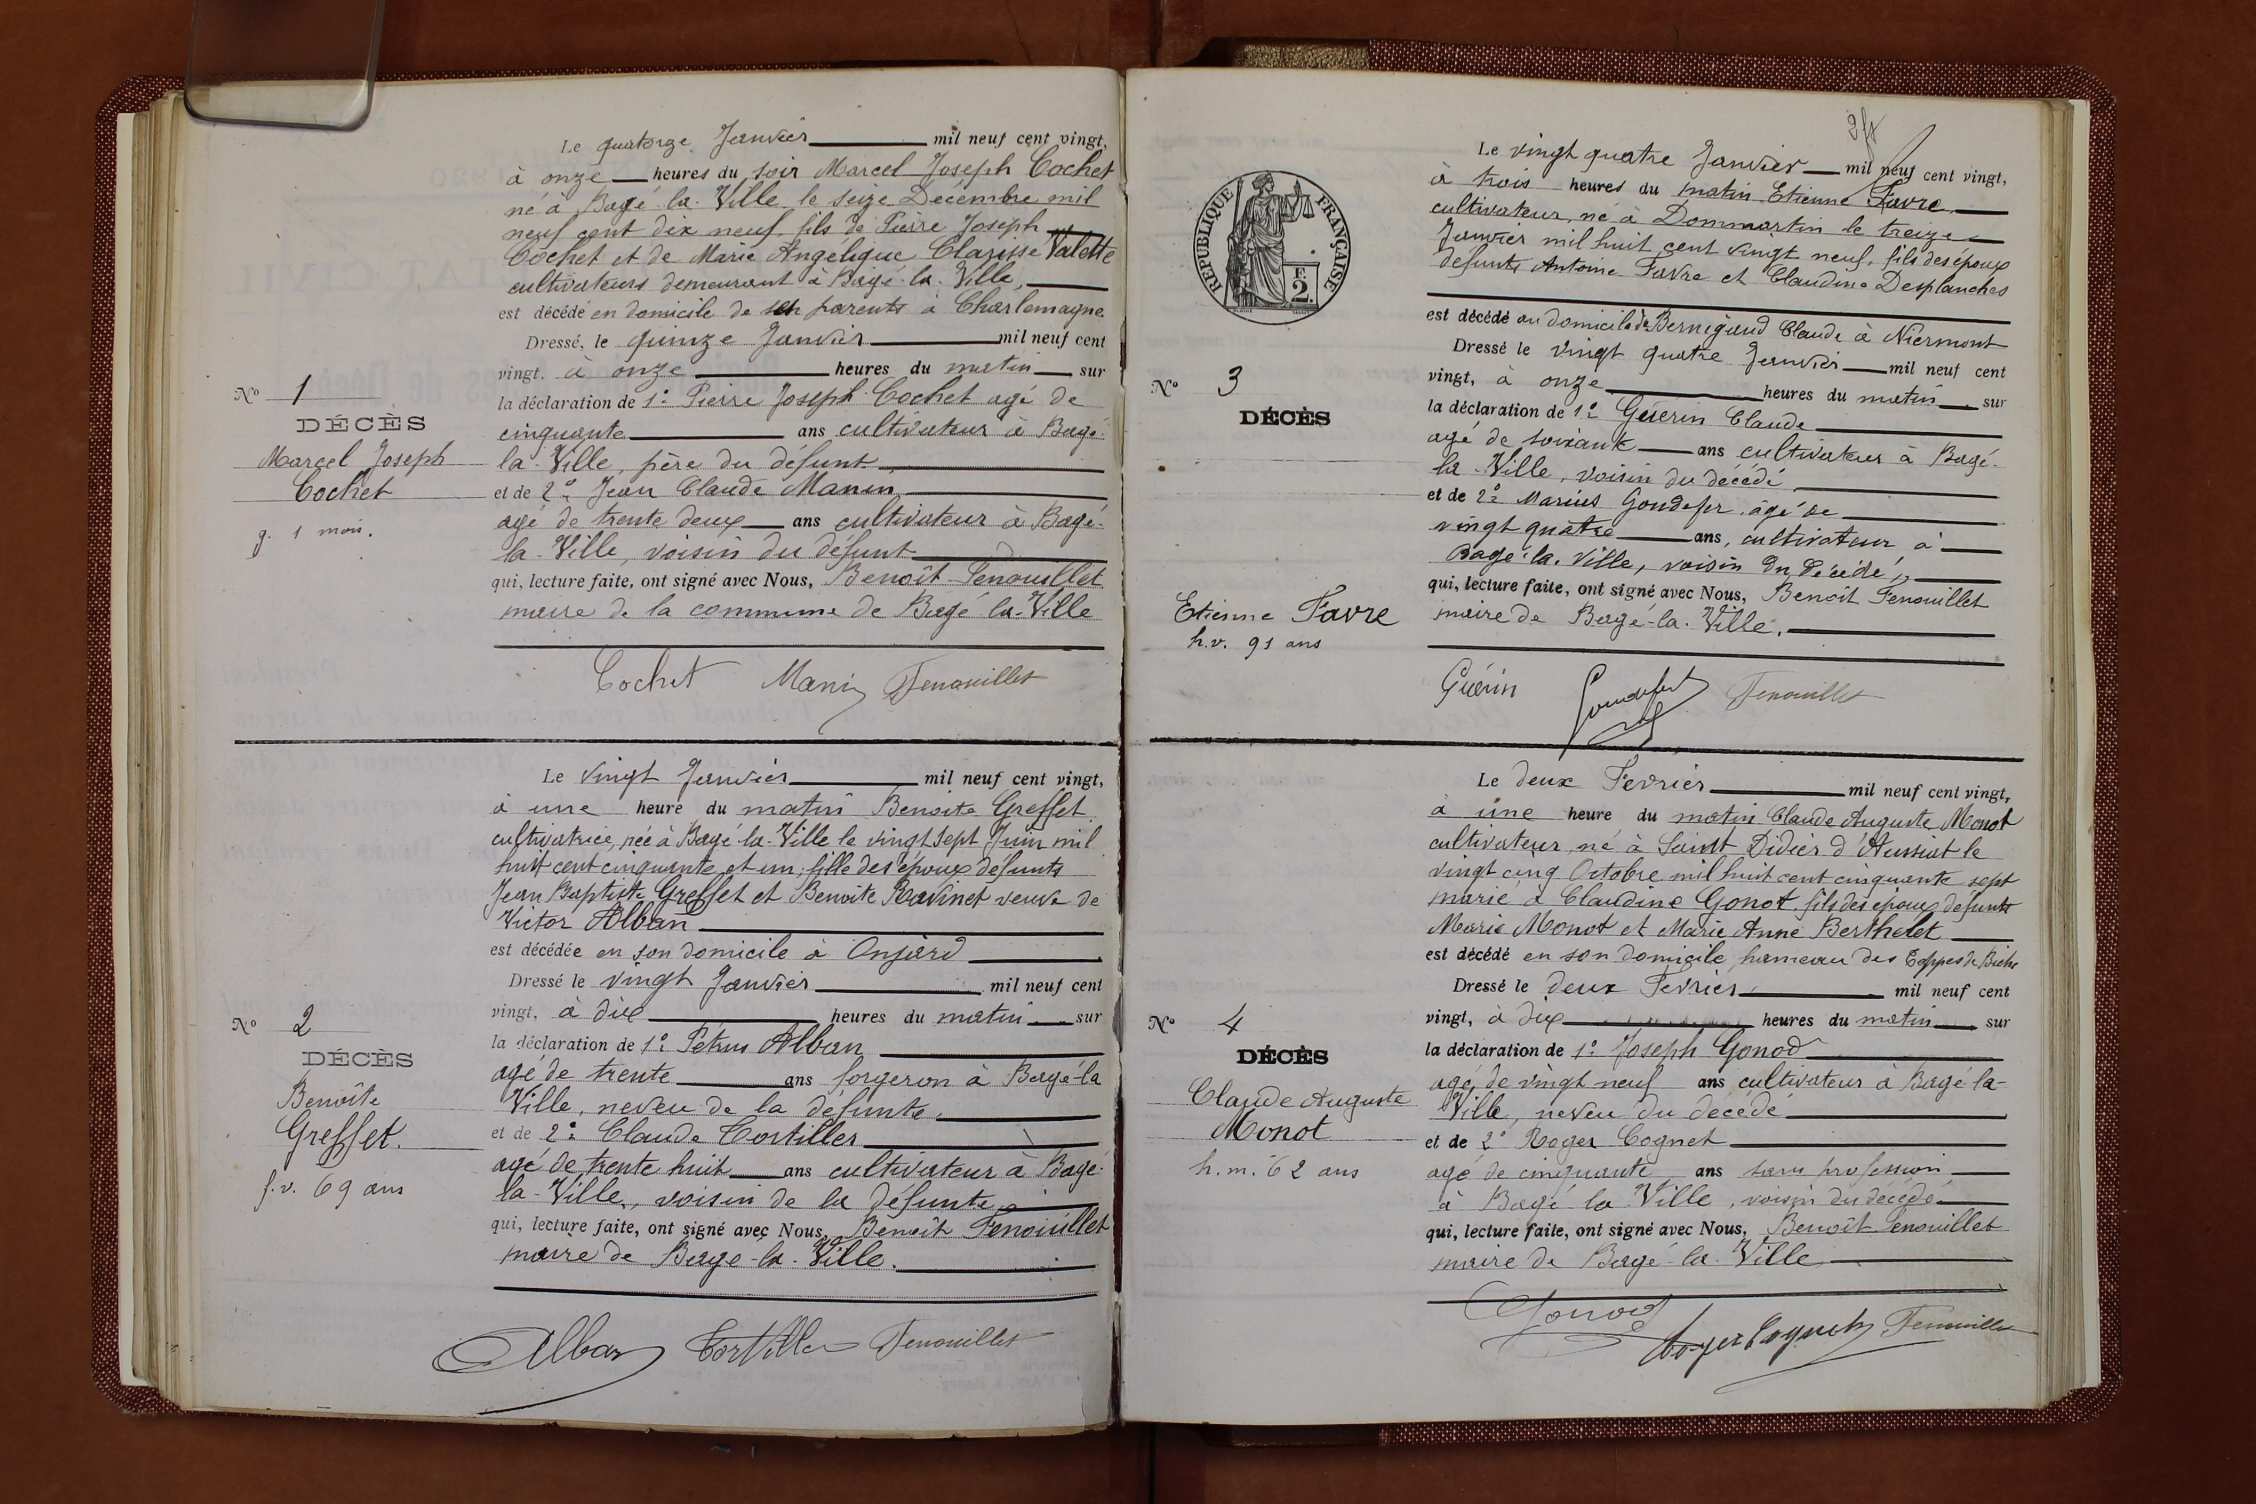 Le quatorze Janvier mil neuf cent vingt,
à onze heures du soir Marcel Joseph Cochet
né à Bagé-la-Ville le seize Décembre mil
neuf cent dix neuf, fils de Pierre Joseph
Cochet et de Marie Angélique Clarisse Valette
cultivateurs demeurant à Bagé-la-Ville,
est décédé en domicile de ses parents à Charlemagne
Dressé, le quinze Janvier mil neuf cent
vingt, à onze heures du matin sur
la déclaration de 1° Pierre Joseph Cochet agé de
cinquante ans cultivateur à Bagé-
la-Ville, père du défunt
et de 2° Jean Claude Manin
agé de trente deux ans cultivateur à Bagé-
la-Ville, voisin du défunt
qui, lecture faite, ont signé avec Nous, Benoît Fenouillet
maire de la commune de Bagé-la-Ville
Nº 1
DÉCÈS
Marcel Joseph
Cochet
g. 1 mois.
Cochet Manin Fenouillet
Le vingt Janvier mil neuf cent vingt,
à une heure du matin Benoite Greffet
cultivatrice, née à Bagé-la-Ville le vingt sept Juin mil
huit cent cinquante et un, fille des époux défunts
Jean Baptiste Greffet et Benoite Ravinet veuve de
Victor Alban
est décédée en son domicile à Onjard
Dressé le vingt Janvier mil neuf cent
vingt, à dix heures du matin sur
la déclaration de 1° Petrus Alban
agé de trente ans forgeron à Bagé-la
Ville, neveu de la défunte,
et de 2° Claude Cortiller
agé de trente huit ans cultivateur à Bagé-
la-Ville, voisin de la défunte
qui, lecture faite, ont signé avec Nous, Benoît Fenouillet
maire de Bagé-la-Ville.
Nº 2
DÉCÈS
Benoîte
Greffet.
f.v. 69 ans
Alban Cortiller Fenouillet
RÉPUBLIQUE FRANÇAISE
F.
2.
Le vingt quatre Janvier mil neuf cent vingt,
à trois heures du matin Etienne Favre
cultivateur, né à Dommartin le treize
Janvier mil huit cent vingt neuf, fils des époux
défunts Antoine Favre et Claudine Desplanches
est décédé au domicile de Bernigaud Claude à Niermont
Dressé le vingt quatre Janvier mil neuf cent
vingt, à onze heures du matin sur
la déclaration de 1° Guérin Claude
agé de soixante ans cultivateur à Bagé-
la-Ville, voisin du décédé
et de 2° Marius Gondefer, âgé de
vingt quatre ans, cultivateur à
Bagé-la-Ville, voisin du décédé,
qui, lecture faite, ont signé avec Nous, Benoit Fenouillet
maire de Bagé-la-Ville.
Nº 3
DÉCÈS
Etienne Favre
h.v. 91 ans
Guérin Fenouillet
Le deux Fevrier mil neuf cent vingt,
à une heure du matin Claude Auguste Monot
cultivateur, né à Saint Didier d'Aussiat le
vingt cinq Octobre mil huit cent cinquante sept
marié à Claudine Gonot, fils des époux défunts
Marie Monot et Marie Anne Berthelet
est décédé en son domicile, hameau des Toppes de Biche
Dressé le deux Fevrier mil neuf cent
vingt, à dix heures du matin sur
la déclaration de 1° Joseph Gonod
agé de vingt neuf ans cultivateur à Bagé-la-
Ville, neveu du décédé
et de 2° Roger Cognet
agé de cinquante ans sans profession
à Bagé la Ville, voisin du décédé
qui, lecture faite, ont signé avec Nous, Benoît Fenouillet
maire de Bagé-la-Ville
Nº 4
DÉCÈS
Claude Auguste
Monot
h.m. 62 ans
Gonod Roger Cognet Fenouillet